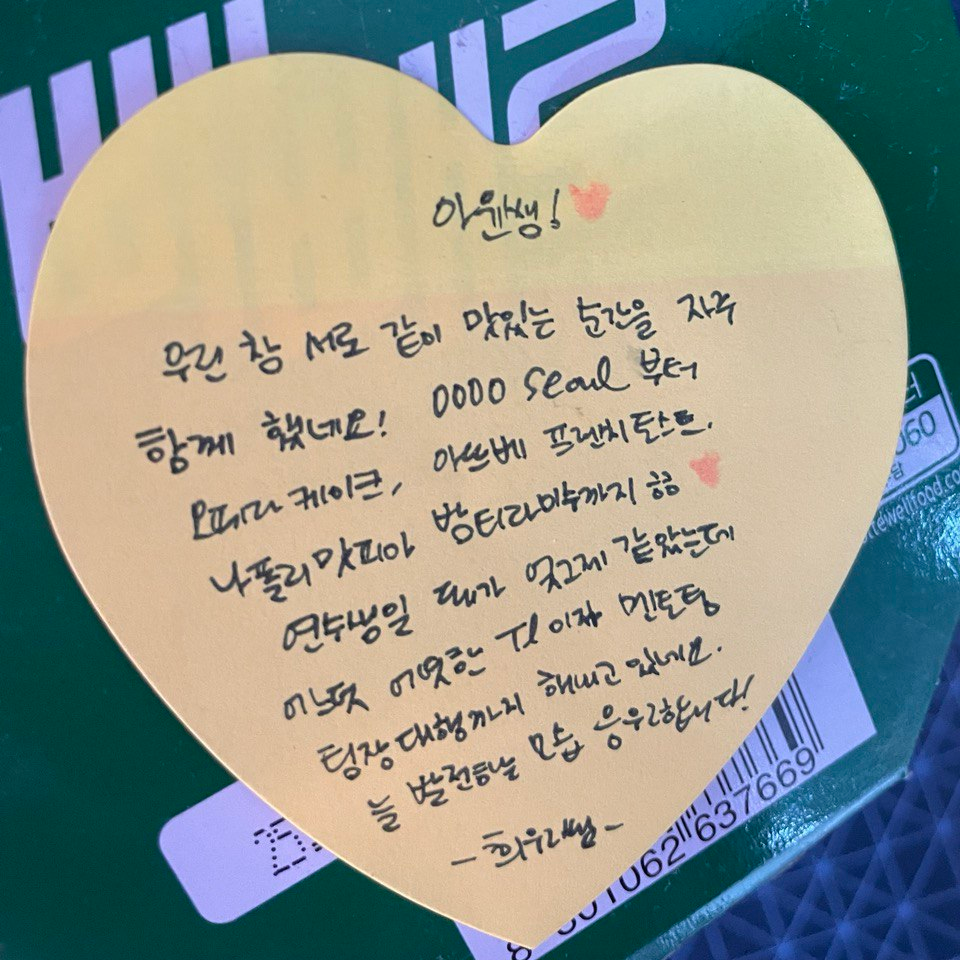 아윤쌤!
우린 참 서로 같이 맛있는 순간을 자주
함께 했네요! 0000 Seoul 부터
오페라케이크, 아쓰베 프렌치토스트,
나폴리맛피아 밤티라미수까지 ㅎㅎ
연수생일 때가 엊그제 같았는데
어느덧 어엿한 TL이자 멘토링
팀장대행까지 해내고 있네요.
늘 발전하는 모습 응원합니다!
- 희우쌤 -
빼빼로
060
ewellfood.co
8 801062 637669